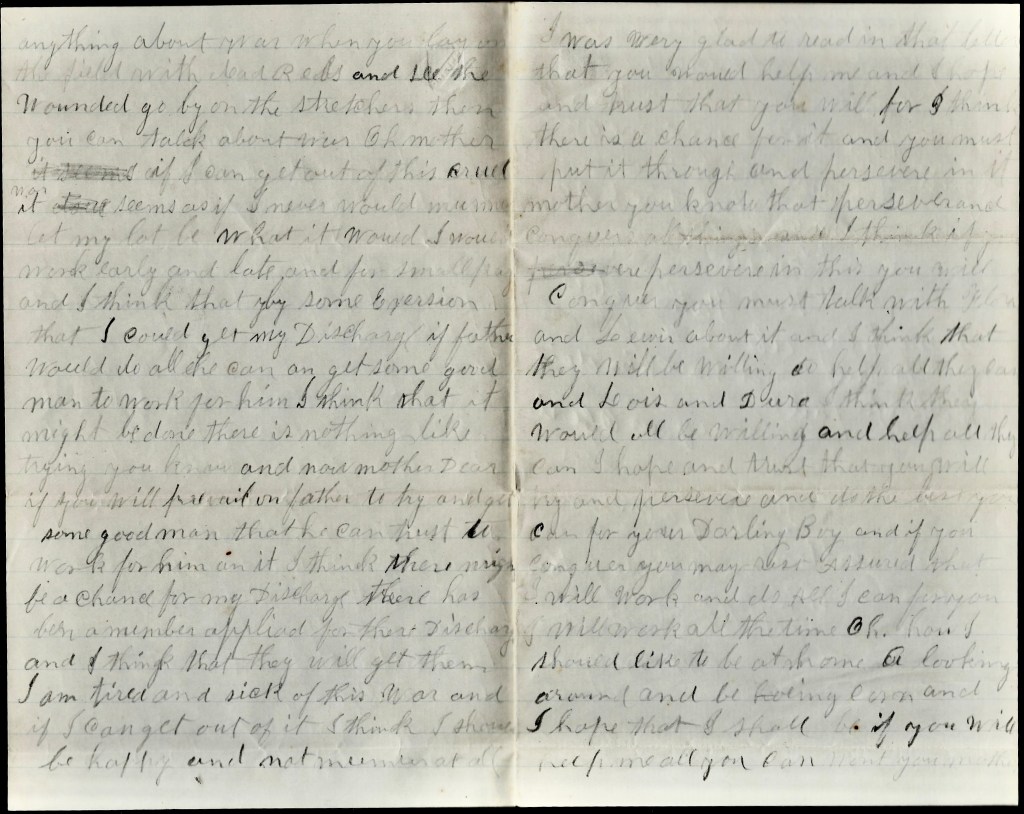 anything about war when you lay on
the field with dead Rebs and see the
Wounded go by on the stretchers then
you can talck about war Oh mother
if I can get out of this cruel
war
it seems as if I never would murmer
let my lot be what it would I would
work early and late, and for small pay
and I think that by some Eversion
that I could get my Discharge if father
Would do all he can an get some good
man to work for him I think that it
might be done there is nothing like
trying you know and now mother Dear
if you will prevail on father to try and get
some good man that he can trust to
work for him on it I think there might
be a chance for my Discharge there has
ben a member applied for there Discharg
and I think that they will get them
I am tired and sick of this War and
if I can get out of it I think I should
be happy and not murmur at all
I was very glad to read in that letter
that you would help me and I hope
and trust that you will for I think
there is a chance for it and you must
put it through and persevere in it
mother you know that perseverand
Conquers all things and I think if you
persevere in this you will
Conquer you must talk with
and Lewis about it and I think that
they will be willing to help all they can
and Lois and Dura I think they
would all be willing and help all they
can I hope and trust that you will
try and persevere and do the best you
can for your Darling Boy and if you
Conquer you may rest assured that
I will work and do all I can for you
I will work all the time Oh. how I
should like to be at home a looking
around and be hoeing corn and
I hope that I shall be if you will
help me all you can wont you mother